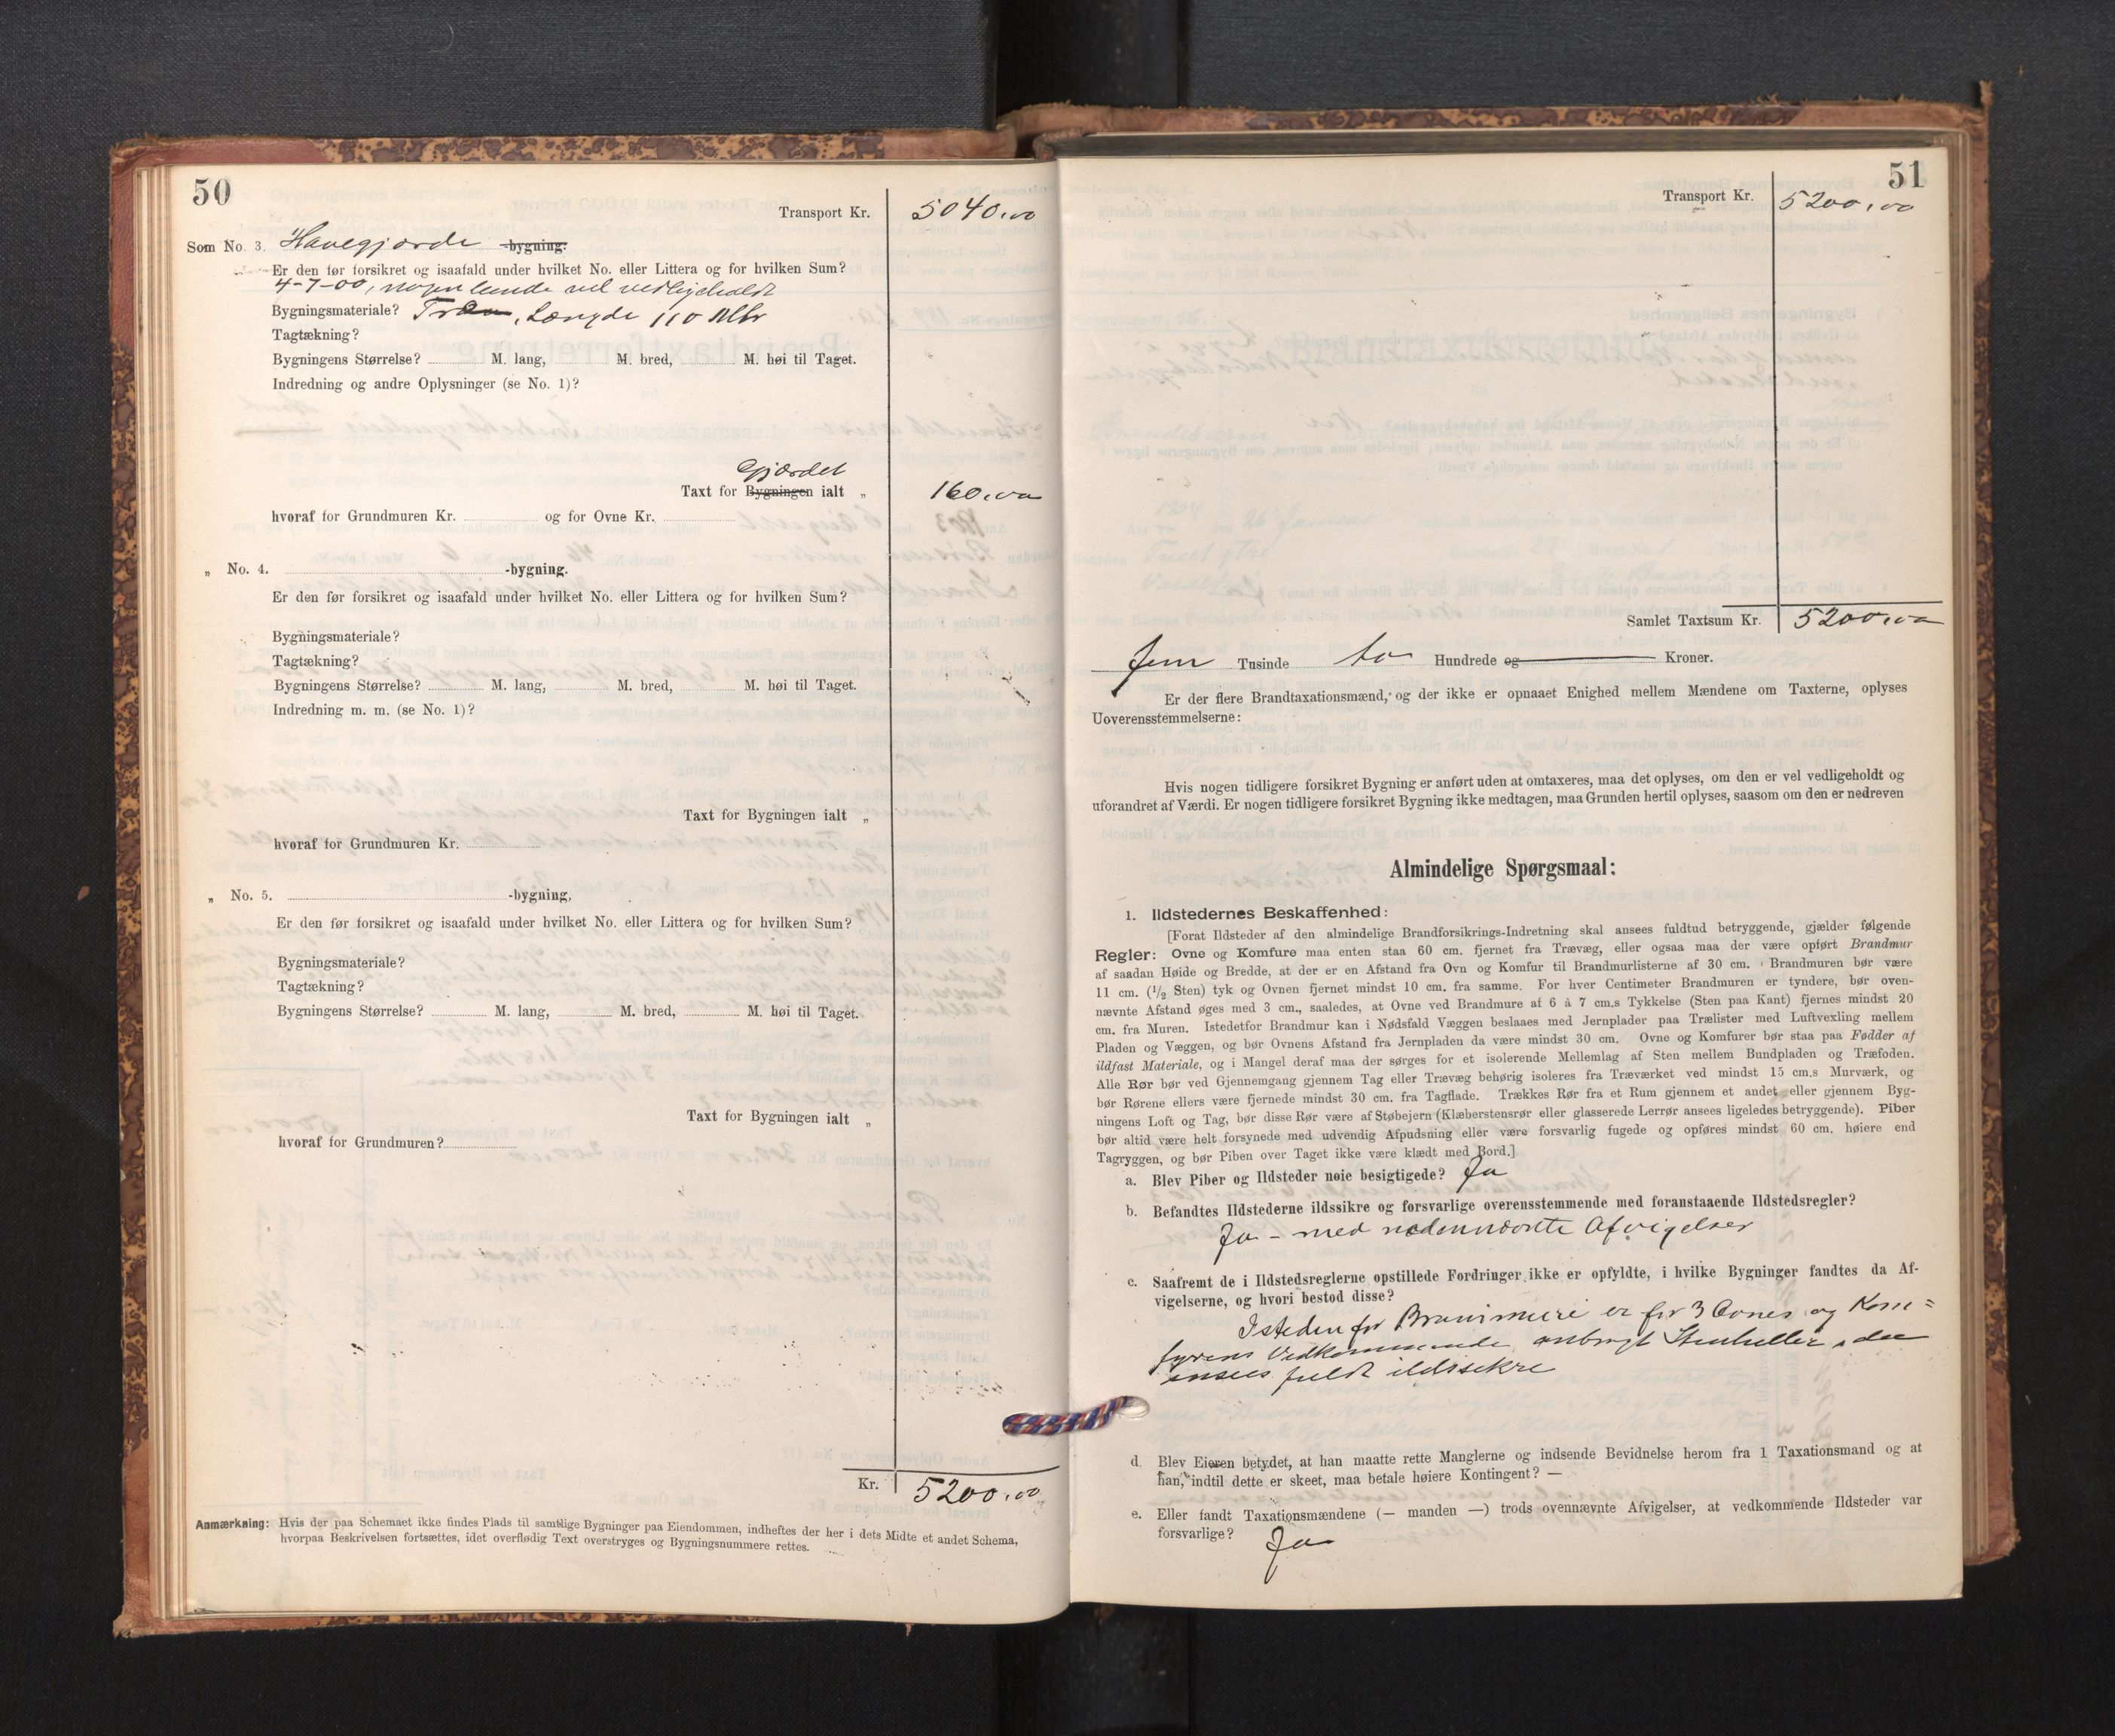 50
Transport Kr. 5040,00
Som No. 3. Havegjærde -bygning.
Er den før forsikret og isaafald under hvilket No. eller Littera og for hvilken Sum?
4-7-00, vel vedligeholdt
Bygningsmateriale? Træ, Længde 110 Mtr
Tagtækning?
Bygningens Størrelse? M. lang, M. bred, M. høi til Taget.
Indredning og andre Oplysninger (se No. 1)?
Gjærdet
Taxt for Bygningen ialt „ 160,00
hvoraf for Grundmuren Kr. og for Ovne Kr.
„ No. 4. -bygning.
Er den før forsikret og isaafald under hvilket No. eller Littera og for hvilken Sum?
Bygningsmateriale?
Tagtækning?
Bygningens Størrelse? M. lang, M. bred, M. høi til Taget.
Indredning m. m. (se No. 1)?
Taxt for Bygningen ialt „
hvoraf for Grundmuren Kr.
„ No. 5. -bygning,
Er den før forsikret og isaafald under hvilket No. eller Littera og for hvilken Sum?
Bygningsmateriale?
Tagtækning?
Bygningens Størrelse? M. lang, M. bred, M. høi til Taget.
Taxt for Bygningen ialt „
hvoraf for Grundmuren?
Kr. 5200,00
Anmærkning: Hvis der paa Schemaet ikke findes Plads til samtlige Bygninger paa Eiendommen, indheftes der her i dets Midte et andet Schema,
hvorpaa Beskrivelsen fortsættes, idet overflødig Text overstryges og Bygningsnummere rettes.
51
Transport Kr. 5200,00
Samlet Taxtsum Kr. 5200,00
Fem Tusinde to Hundrede og Kroner.
Er der flere Brandtaxationsmænd, og der ikke er opnaaet Enighed mellem Mændene om Taxterne, oplyses
Uoverensstemmelserne:
Hvis nogen tidligere forsikret Bygning er anført uden at omtaxeres, maa det oplyses, om den er vel vedligeholdt og
uforandret af Værdi. Er nogen tidligere forsikret Bygning ikke medtagen, maa Grunden hertil oplyses, saasom om den er nedreven
Almindelige Spørgsmaal:
1. Ildstedernes Beskaffenhed:
[Forat Ildsteder af den almindelige Brandforsikrings-Indretning skal ansees fuldtud betryggende, gjælder følgende
Regler: Ovne og Komfure maa enten staa 60 cm. fjernet fra Trævæg, eller ogsaa maa der være opført Brandmur
af saadan Høide og Bredde, at der er en Afstand fra Ovn og Komfur til Brandmurlisterne af 30 cm. Brandmuren bør være
11 cm. (1/2 Sten) tyk og Ovnen fjernet mindst 10 cm. fra samme. For hver Centimeter Brandmuren er tyndere, bør oven-
nævnte Afstand øges med 3 cm., saaledes, at Ovne ved Brandmure af 6 à 7 cm.s Tykkelse (Sten paa Kant) fjernes mindst 20
cm. fra Muren. Istedetfor Brandmur kan i Nødsfald Væggen beslaaes med Jernplader paa Trælister med Luftvexling mellem
Pladen og Væggen, og bør Ovnens Afstand fra Jernpladen da være mindst 30 cm. Ovne og Komfurer bør staa paa Fødder af
ildfast Materiale, og i Mangel deraf maa der sørges for et isolerende Mellemlag af Sten mellem Bundpladen og Træfoden.
Alle Rør bør ved Gjennemgang gjennem Tag eller Trævæg behørig isoleres fra Træværket ved mindst 15 cm.s Murværk, og
bør Rørene ellers være fjernede mindst 30 cm. fra Tagflade. Trækkes Rør fra et Rum gjennem et andet eller gjennem Byg-
ningens Loft og Tag, bør disse Rør være af Støbejern (Klæberstensrør eller glasserede Lerrør ansees ligeledes betryggende). Piber
bør altid være helt forsynede med udvendig Afpudsning eller være forsvarlig fugede og opføres mindst 60 cm. høiere end
Tagryggen, og bør Piben over Taget ikke være klædt med Bord.]
a. Blev Piber og Ildsteder nøie besigtigede? Ja
b. Befandtes Ildstederne ildssikre og forsvarlige overensstemmende med foranstaaende Ildstedsregler?
Ja - med nedennævnte Afvigelser
c. Saafremt de i Ildstedsreglerne opstillede Fordringer ikke er opfyldte, i hvilke Bygninger fandtes da Af-
vigelserne, og hvori bestod disse?
Istedenfor Brandmure er for 3 Ovnes og Kom=
fyrens Vedkommende anbragt Stenheller, der
ansees fuldt ildssikre
d. Blev Eieren betydet, at han maatte rette Manglerne og indsende Bevidnelse herom fra 1 Taxationsmand og at
han, indtil dette er skeet, maa betale høiere Kontingent? —
e. Eller fandt Taxationsmændene (— manden —) trods ovennævnte Afvigelser, at vedkommende Ildsteder var
forsvarlige? Ja